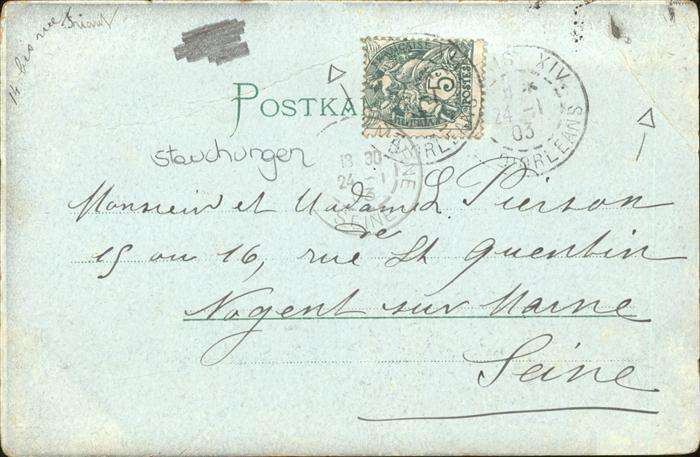 14 bis rue
POSTKA
5
POSTES
PARIS XIV
24 -1
03
D'ORLEANS
stauchungen
18 30
24 -1
03
SEINE
Monsieur et Madame L. Pierson
de
15 ou 16, rue St Quentin
Nogent sur Marne
Seine